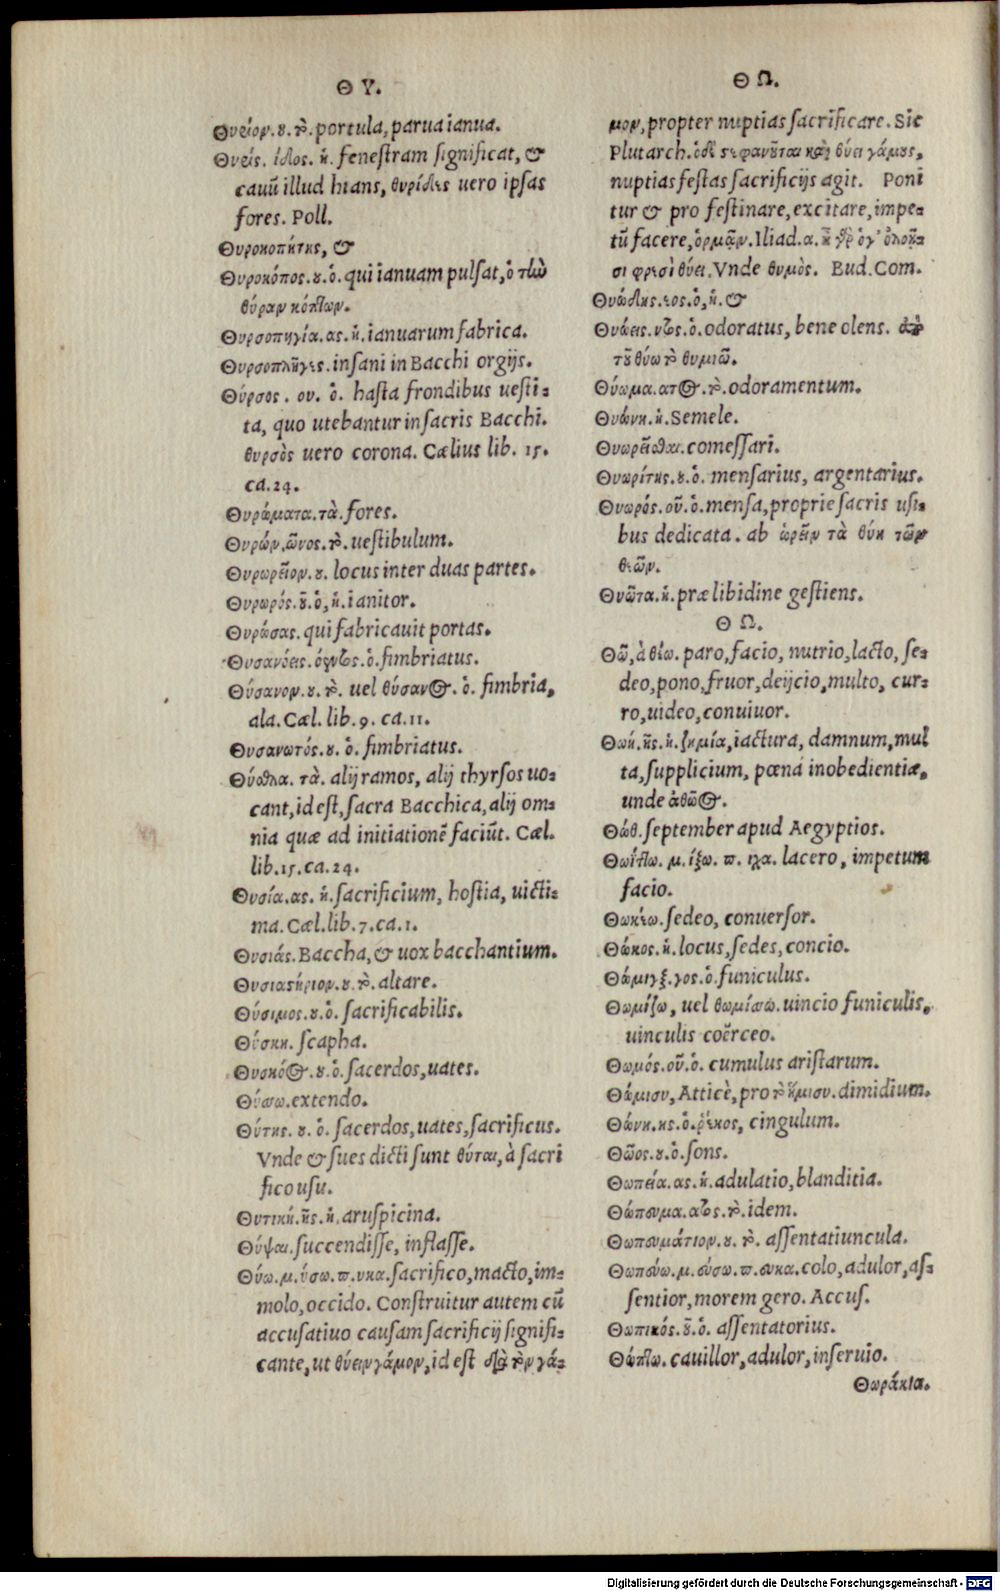 Θ Υ.
Θυρίον. ου. τὸ. portula, parua ianua.
Θυρίς. ίδος. ἡ. feneſtram ſignificat, &
cauū illud hians, θυρίδες uero ipſas
fores. Poll.
Θυροκοπήτης, &
Θυροκόπος. ου. ὁ. qui ianuam pulſat, ὁ τὴν
θύραν κόπτων.
Θυρσοπηγία. ας. ἡ. ianuarum fabrica.
Θυρσοπλῆγες. inſani in Bacchi orgijs.
Θύρσος. ου. ὁ. haſta frondibus ueſti-
ta, quo utebantur in ſacris Bacchi.
θυρσὸς uero corona. Cælius lib. 15.
ca. 24.
Θυρώματα. τὰ. fores.
Θυρών. ῶνος. τὸ. ueſtibulum.
Θυρωρεῖον. ου. locus inter duas partes.
Θυρωρός. οῦ. ὁ, ἡ. ianitor.
Θυρώσας. qui fabricauit portas.
Θυσανόεις. όεντος. ὁ. fimbriatus.
Θύσανον. ου. τὸ. uel θύσανος. ὁ. fimbria,
ala. Cæl. lib. 9. ca. 11.
Θυσανωτός. ου. ὁ. fimbriatus.
Θύσθλα. τὰ. alij ramos, alij thyrſos uo-
cant, id eſt, ſacra Bacchica, alij om-
nia quæ ad initiationē faciūt. Cæl.
lib. 15. ca. 24.
Θυσία. ας. ἡ. ſacrificium, hoſtia, uicti-
ma. Cæl. lib. 7. ca. 1.
Θυσιάς. Baccha, & uox bacchantium.
Θυσιαστήριον. ου. τὸ. altare.
Θύσιμος. ου. ὁ. ſacrificabilis.
Θύσκη. ſcapha.
Θυσκόος. ου. ὁ. ſacerdos, uates.
Θύσσω. extendo.
Θύτης. ου. ὁ. ſacerdos, uates, ſacrificus.
Vnde & ſues dicti ſunt θύται, à ſacri
fico uſu.
Θυτική. ῆς. ἡ. aruſpicina.
Θύψαι. ſuccendiſſe, inflaſſe.
Θύω. μ. ύσω. π. υκα. ſacrifico, macto, im-
molo, occido. Conſtruitur autem cū
accuſatiuo cauſam ſacrificij ſignifi-
cante, ut θύειν γάμον, id eſt διὰ τὸν γά-
Θ Ω.
μον, propter nuptias ſacrificare. Sic
Plutarch. ὁδὶ στεφανοῦται καὶ θύει γάμους,
nuptias feſtas ſacrificijs agit. Poni
tur & pro feſtinare, excitare, impe-
tū facere, ὁρμᾷν. Iliad. α. ἦ γὰρ ὅγ' ὀλοῇ-
σι φρεσὶ θύει. Vnde θυμὸς. Bud. Com.
Θυώδης. εος. ὁ, ἡ. &
Θυώεις. ντος. ὁ. odoratus, bene olens. ἀπὸ
τοῦ θύω τὸ θυμιῶ.
Θύωμα. ατος. τὸ. odoramentum.
Θυώνη. ἡ. Semele.
Θυωρεῖσθαι. comeſſari.
Θυωρίτης. ου. ὁ. menſarius, argentarius.
Θυωρός. οῦ. ὁ. menſa, proprie ſacris uſi-
bus dedicata. ab ὠρεῖν τὰ θύη τῶν
θεῶν.
Θυῶτα. ἡ. præ libidine geſtiens.
Θ Ω.
Θῶ, à θέω. paro, facio, nutrio, lacto, ſe-
deo, pono, fruor, deijcio, multo, cur-
ro, uideo, conuiuor.
Θωή. ῆς. ἡ. ζημία, iactura, damnum, mul
ta, ſupplicium, pœna inobedientiæ,
unde ἀθῶος.
Θώθ. ſeptember apud Aegyptios.
Θωΐπτω. μ. ίξω. π. ιχα. lacero, impetum
facio.
Θωκέω. ſedeo, conuerſor.
Θώκος. ἡ. locus, ſedes, concio.
Θώμιγξ. γος. ὁ. funiculus.
Θωμίζω, uel θωμίσσω. uincio funiculis,
uinculis coërceo.
Θωμός. οῦ. ὁ. cumulus ariſtarum.
Θώμισυ, Atticè, pro τὸ ἥμισυ. dimidium.
Θώνη. ης. ὁ. ῥῖκος, cingulum.
Θῶος. ου. ὁ. ſons.
Θωπεία. ας. ἡ. adulatio, blanditia.
Θώπευμα. ατος. τὸ. idem.
Θωπευμάτιον. ου. τὸ. aſſentatiuncula.
Θωπεύω. μ. εύσω. π. ευκα. colo, adulor, aſ-
ſentior, morem gero. Accuſ.
Θωπικός. οῦ. ὁ. aſſentatorius.
Θώπτω. cauillor, adulor, inſeruio.
Θωράκια.
Digitalisierung gefördert durch die Deutsche Forschungsgemeinschaft - DFG